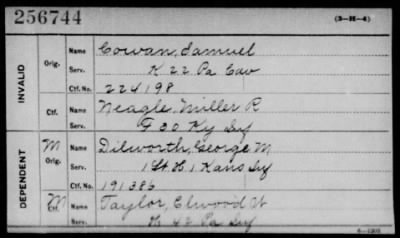 256744 (3-H-4)
INVALID
Orig. Name Cowan, Samuel
Serv. K 22 Pa Cav
Ctf. No. 224198
Ctf. Name Neagle, Miller R
Serv. F 30 Ky Inf
DEPENDENT
M Orig. Name Dilworth, George M
Serv. 1 Lt H 1 Kans Inf
Ctf. No. 191386
M Ctf. Name Taylor, Elwood W
Serv. 42 Pa Inf